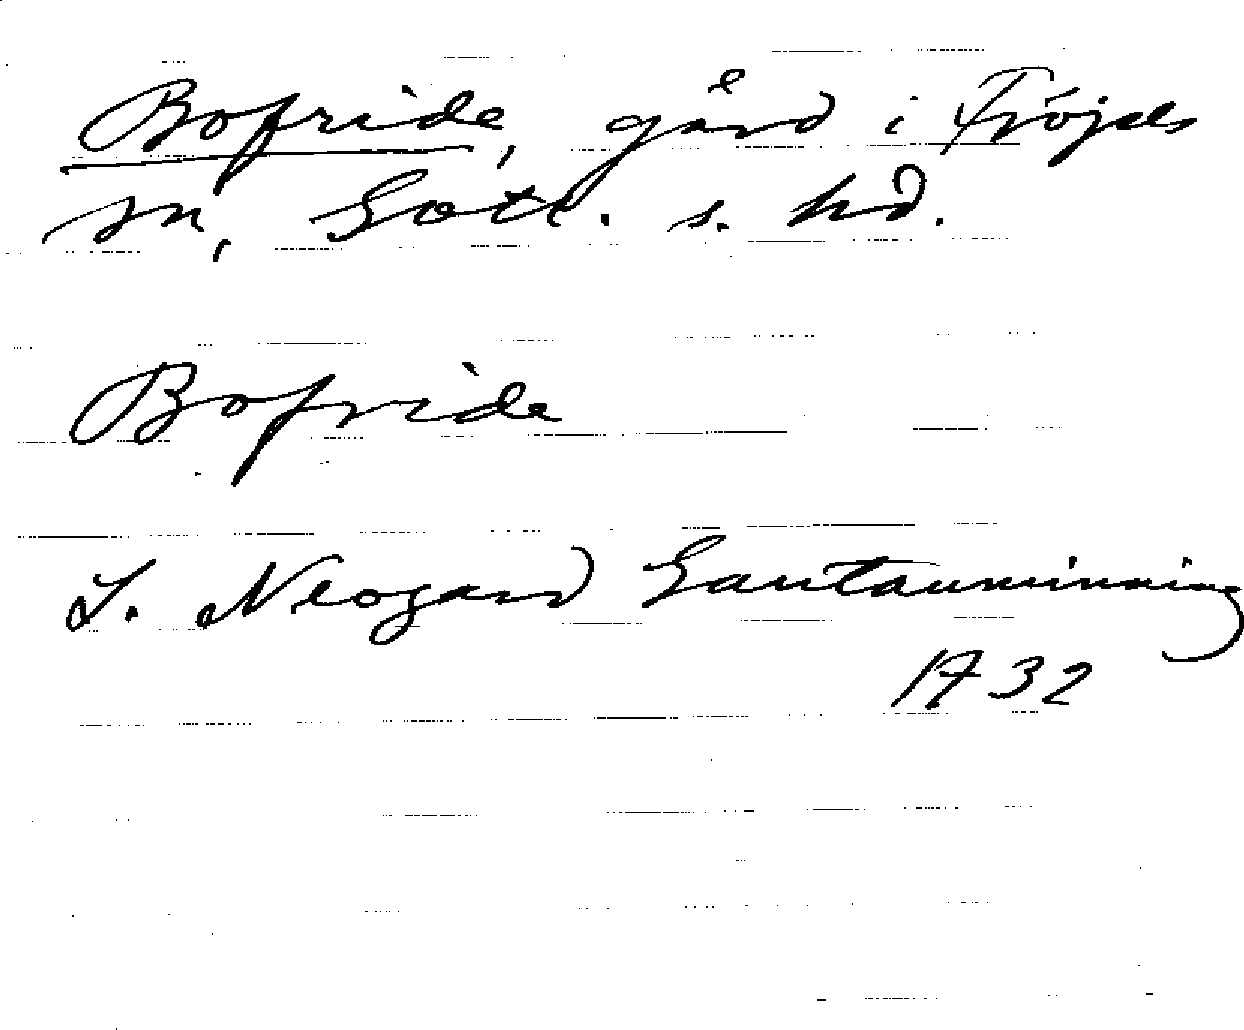 Bofride, gård i Fröjels
sn, Gotl. s. hd.
Bofride
L. Neogard Gautauminning
1732